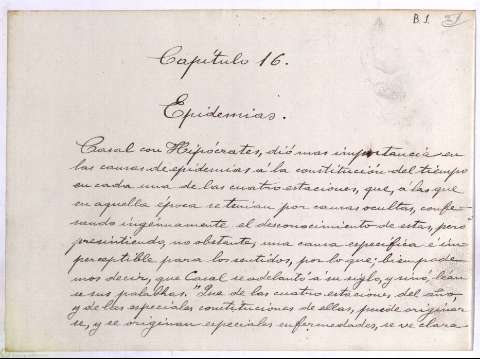 B 1
Capítulo 16.
Epidemias.
Casal con Hipócrates, dió mas importancia en
las causas de epidemias á la constitución del tiempo
en cada una de las cuatro estaciones, que, á las que
en aquella época se tenian por causas ocultas, confe-
sando ingénuamente el desconocimiento de estas, pero
presintiendo, no obstante, una causa especifica é im-
perceptible para los sentidos, por lo que; bien pode-
mos decir, que Casal se adelantó á su siglo, y sinó, léan-
se sus palabras. "Que de las cuatro estaciones del año,
y de las especiales constituciones de ellas, puede originar-
se, y se originan especiales enfermedades, se ve clara